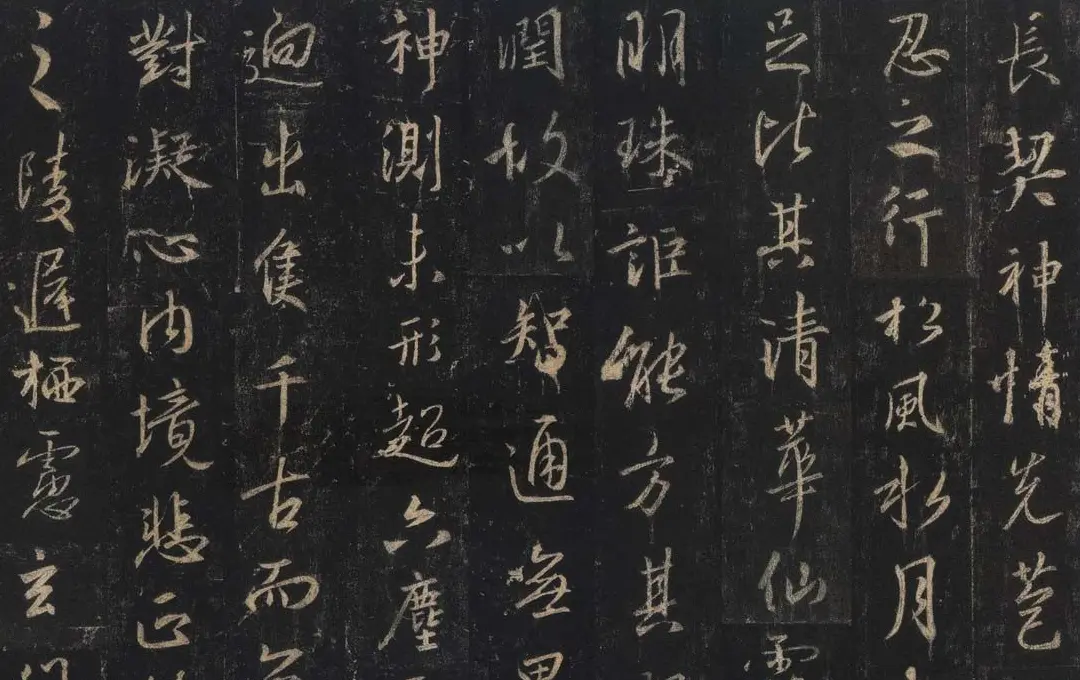 長契神情先苞
忍之行松風水月
足比其清華仙露
明珠詎能方其朗
潤故以智通無累
神測未形超六塵
迥出隻千古而無
對凝心內境悲正
之陵遲栖慮玄